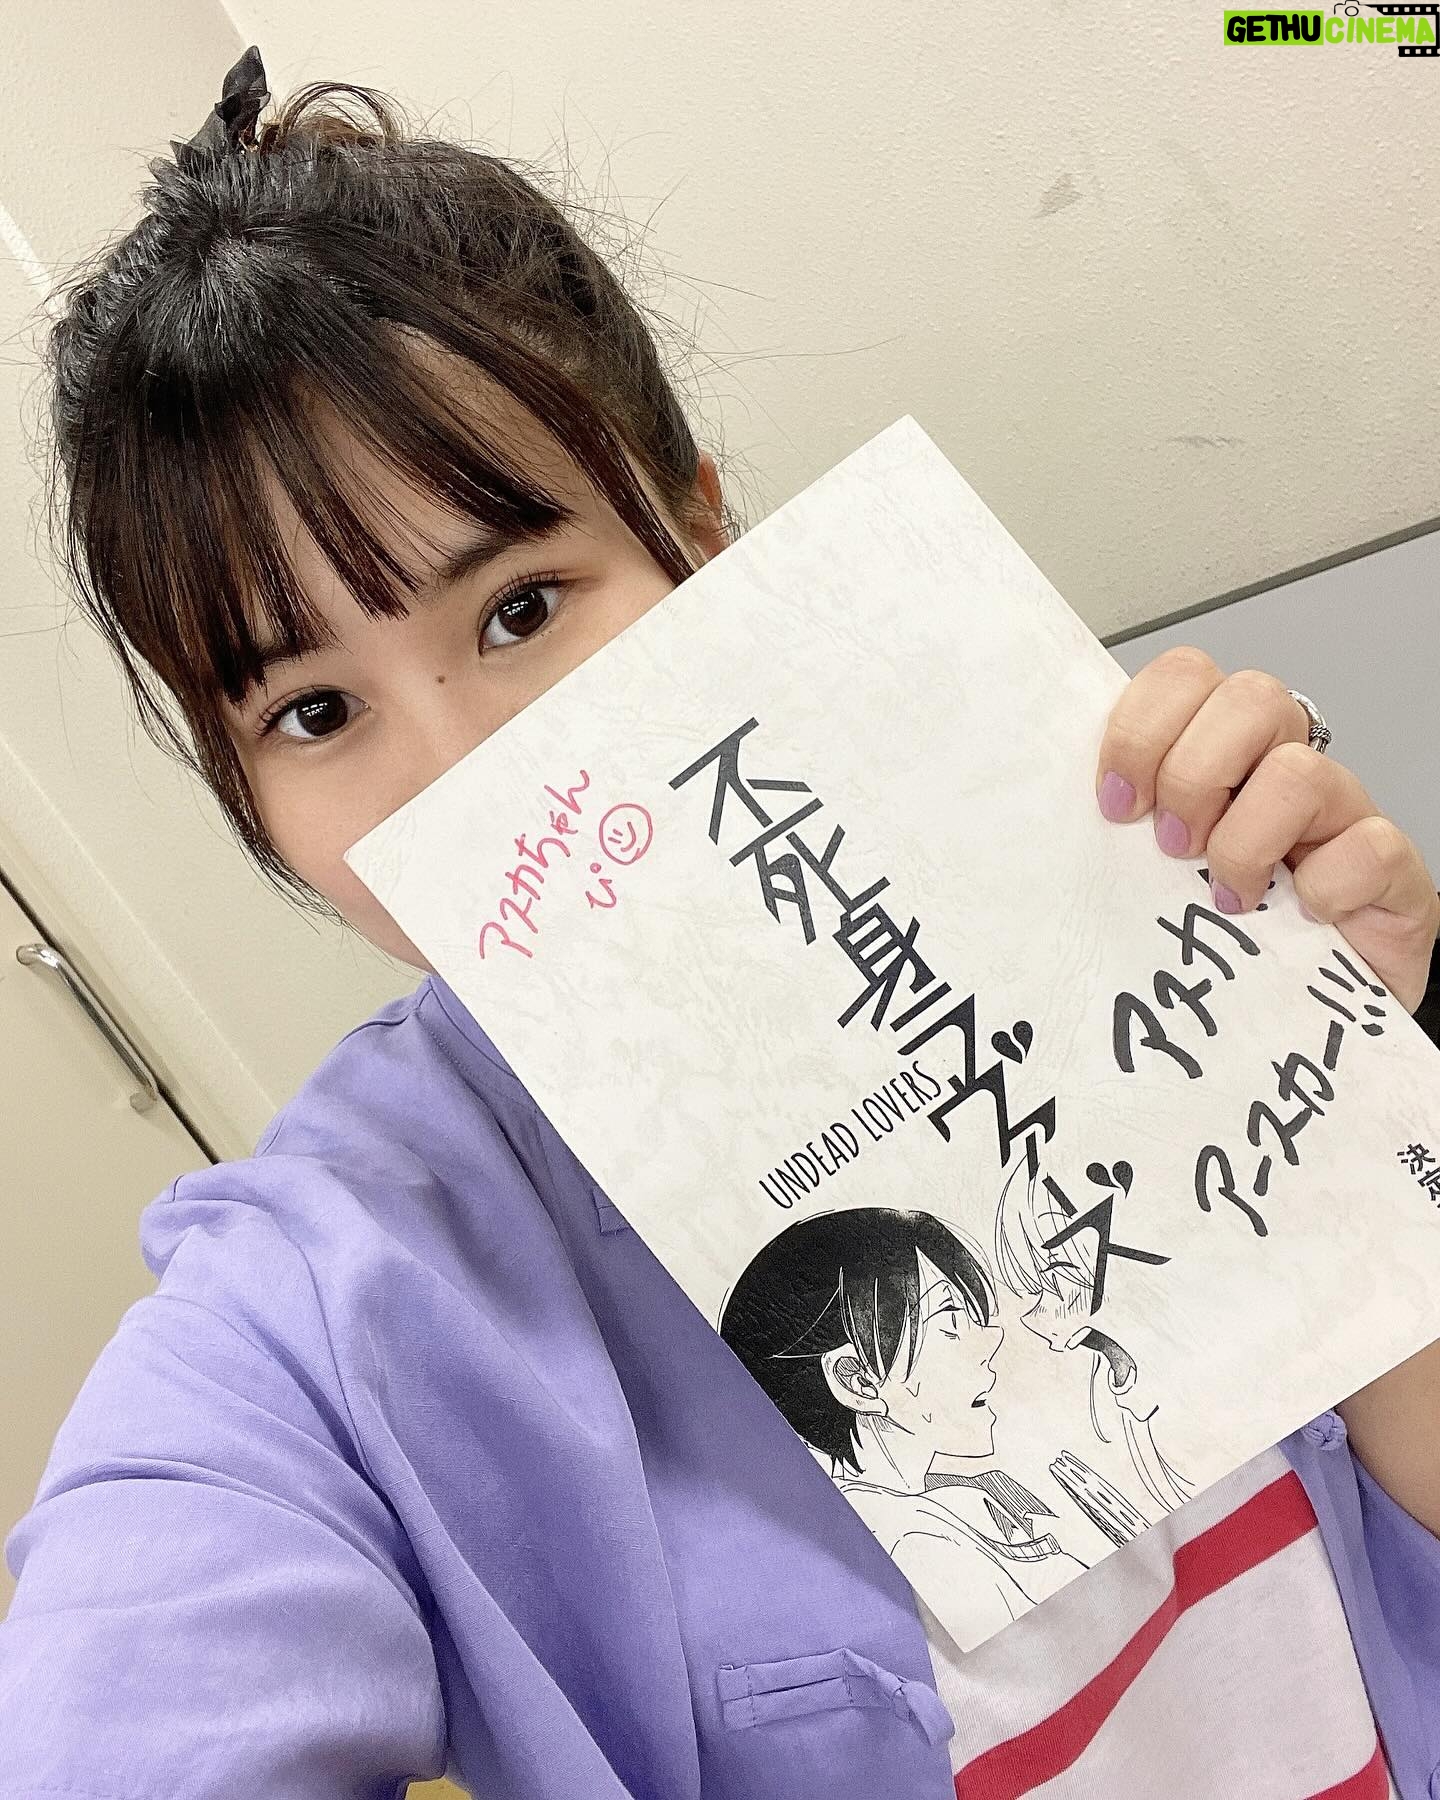 GETHUCINEMA
アスカちゃん
ぴ
不死身ラヴァーズ
UNDEAD LOVERS
アスカ
アースカー!!!
決定